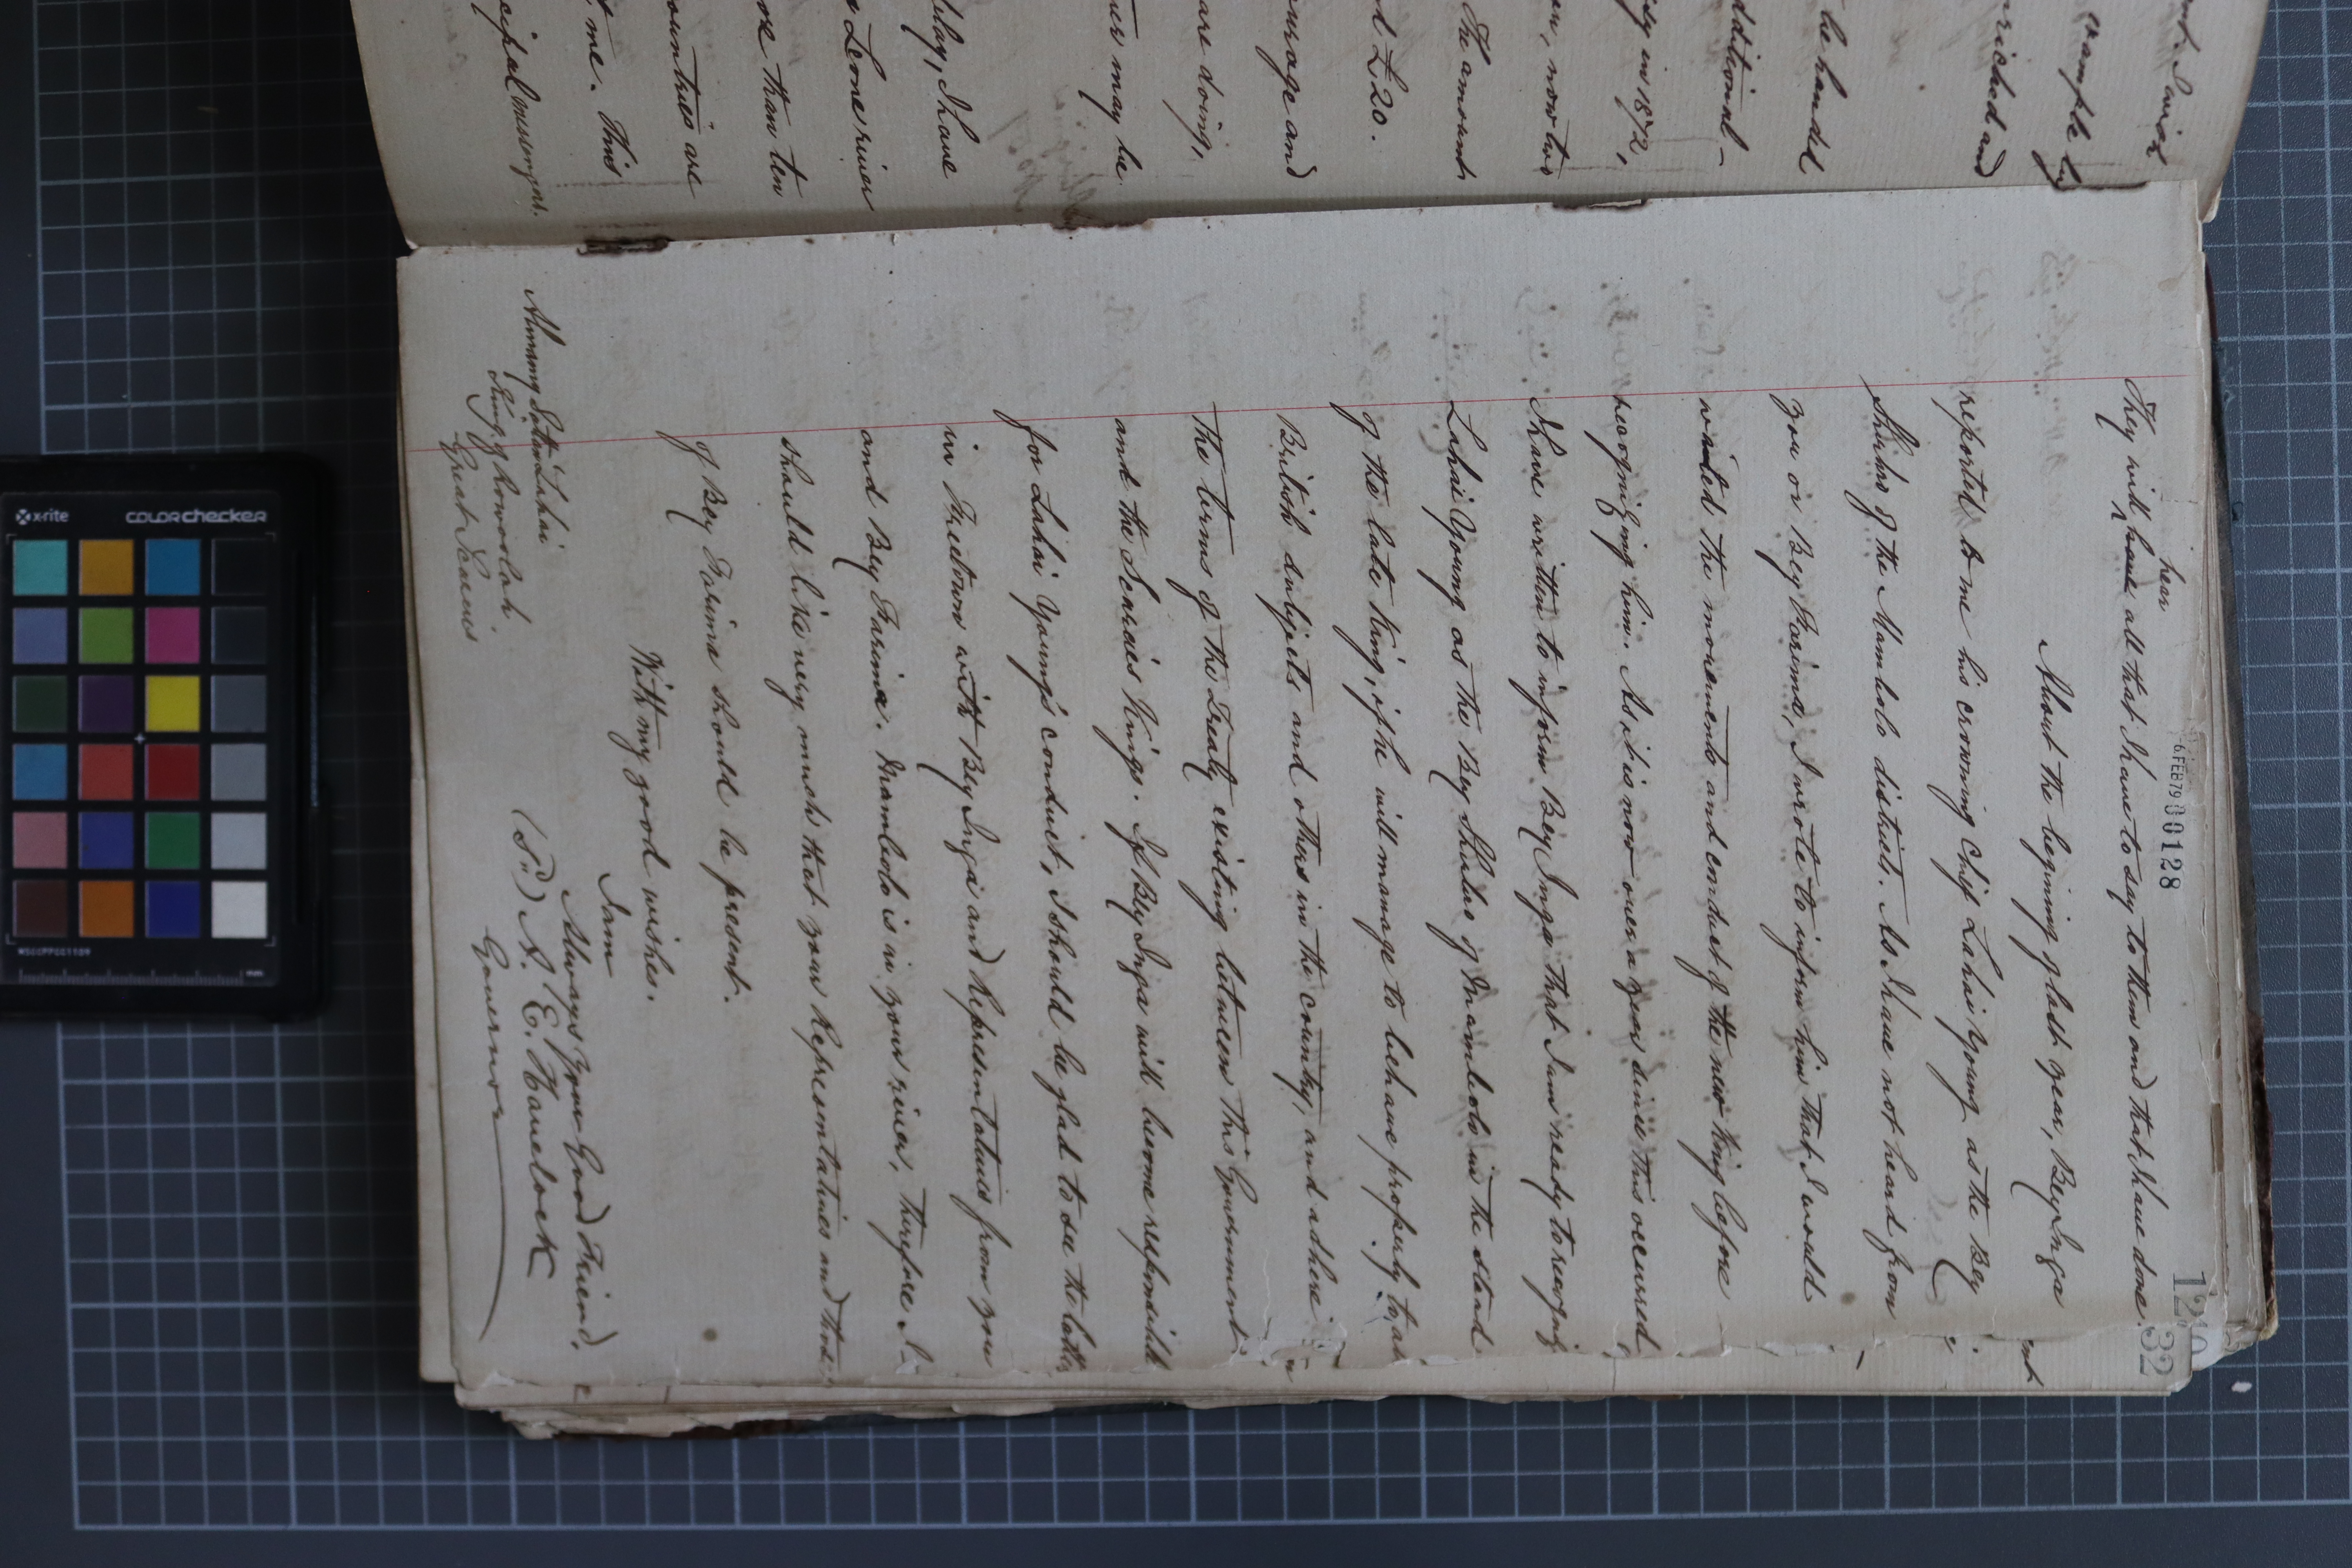 6 FEB 79 00128
32
hear
They will have all that I have to say to them and that I have done.
About the beginning of last year, Bey Inga
reported to me his crowning Chief Lahai Young as the Bey
Shuhro of the Mambolo district. As I have not heard from
you or Bey Farima, I wrote to inform him that I would
waited the movements and conduct of the new King before
recognizing him. As it is now over a year since this occurred,
I have written to inform Bey Inga that I am ready to recognize
Lahai Young as the Bey Shuhro of Mambolo in the stead
of the late King, if he will manage to behave properly to all
British subjects and others in the country, and adhere
The terms of the Treaty existing between this Government
and the Scarcies Kings. If Bey Inga will become responsible
for Lahai Young's conduct, I should be glad to see the latter
in Freetown with Bey Inga and Representatives from you
and Bey Farima. Mambolo is in your river, therefore I
should like very much that your Representatives and those
of Bey Farima should be present.
With my good wishes.
I am
Always Your Good Friend,
(Sd) A. E. Havelock
Governor
Almamy Sattan Lahai
King of Rowoolah.
Great Scarcies
xample by
nriched and
be handed
dditional-
in 1872,
on, now two
The amount
£20.
ourage and
are doing,
may be
I have
Leone river
ore than ten
ountries are
me. This
cipal messengers.
x-rite
colorchecker
MSCCPPCC1109